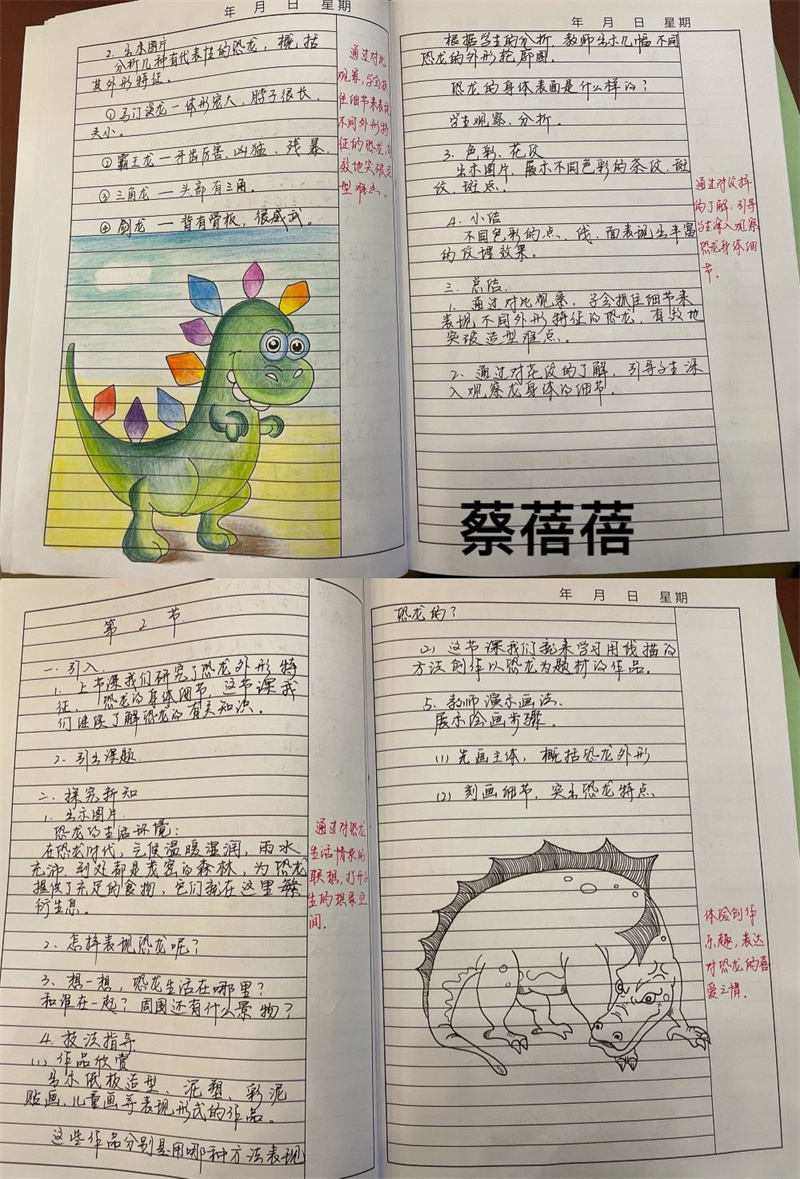 年 月 日 星期
2. 出示图片
分析几种有代表性的恐龙，概括
其外形特征。
①马门溪龙—体形宏大，脖子很长，
头小。
②霸王龙—牙齿厉害、凶猛、残暴
③三角龙—头部有三角。
④剑龙—背有骨板，很威武。
通过对比
观察，学会抓
住细节来表现
不同外形特
征的恐龙，有
效地突破造
型难点。
年 月 日 星期
根据学生的分析，教师出示几幅不同
恐龙的外形轮廓图。
恐龙的身体表面是什么样的？
学生观察、分析。
3. 色彩、花纹
出示图片，展示不同色彩的条纹、斑
纹、斑点。
4. 小结
不同色彩的点、线、面表现出丰富
的纹理效果。
三. 总结
1. 通过对比观察，学会抓住细节来
表现不同外形特征的恐龙，有效地
突破造型难点。
2. 通过对花纹的了解，引导学生深
入观察龙身体的细节。
通过对纹样
的了解，引导
学生深入观察
恐龙身体细
节。
蔡蓓蓓
第 2 节
一. 引入
1. 上节课我们研究了恐龙外形特
征、恐龙的身体细节，这节课我
们继续了解恐龙的有关知识。
2. 引出课题
二. 探究新知
1. 出示图片
恐龙的生活环境：
在恐龙时代，气候温暖湿润，雨水
充沛，到处都是茂密的森林，为恐龙
提供了充足的食物，它们就在这里繁
衍生息。
2. 怎样表现恐龙呢？
3. 想一想，恐龙生活在哪里？
和谁在一起？周围还有什么景物？
4. 技法指导
(1) 作品欣赏
出示纸板造型、泥塑、彩泥
贴画、儿童画等表现形式的作品。
这些作品分别是用哪种方法表现
通过对恐龙
生活情景的
联想，打开学
生的想象空
间。
年 月 日 星期
恐龙的？
(2) 这节课我们就来学习用线描的
方法创作以恐龙为题材的作品。
5. 教师演示画法、
展示绘画步骤。
(1) 先画主体，概括恐龙外形
(2) 刻画细节，突出恐龙特点
体验创作
乐趣，表达
对恐龙的喜
爱之情。